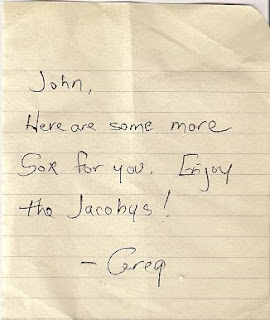 John,
Here are some more
Sox for you. Enjoy
the Jacobys!
- Greg